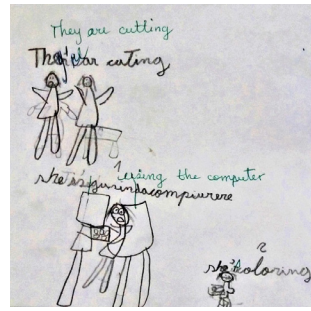 They are cutting
They ar cuting
1
using the computer
she is yusindacompiurere
2
she's coloring